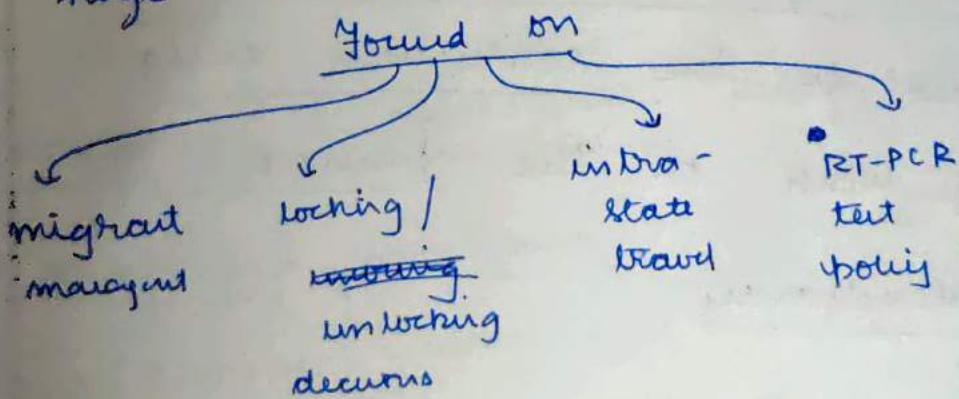 Found on
migrant
management
locking /
unlocking
decisions
intra-
state
travel
RT-PCR
test
policy